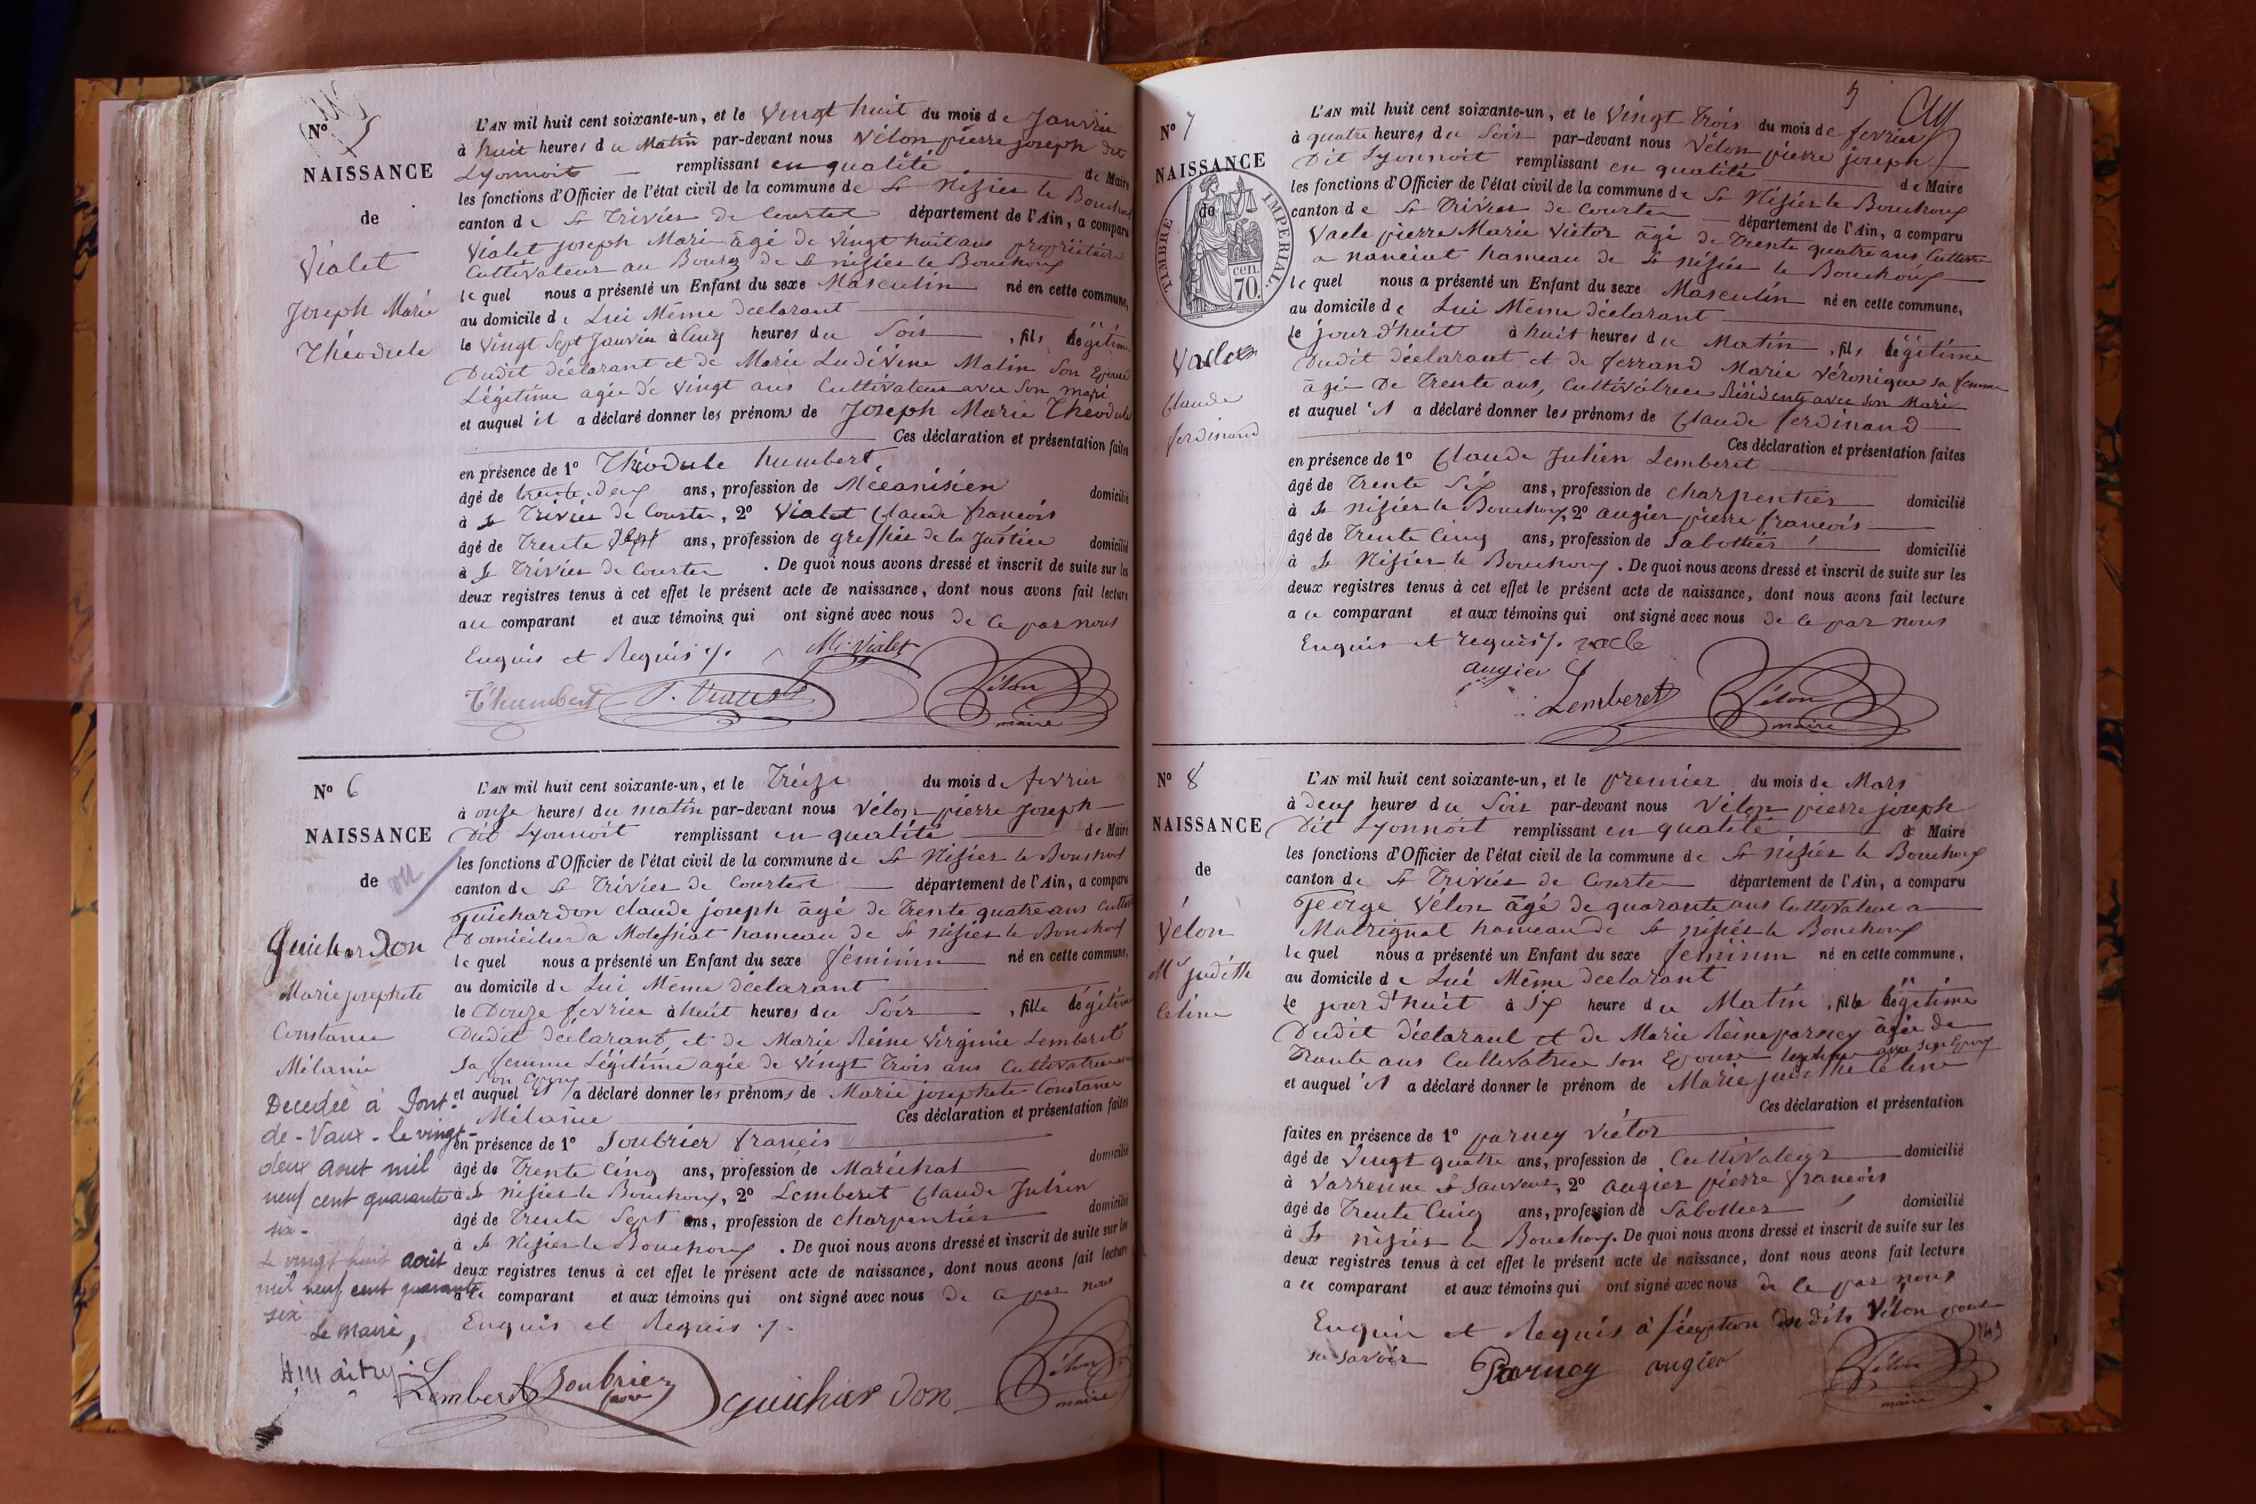 N° 5
NAISSANCE
de
Vialet
Joseph Marie
Théodule
L'AN mil huit cent soixante-un, et le Vingt huit du mois de Janvier
à huit heures du Matin par-devant nous Vélon pierre joseph dit
Lyonnoit remplissant en qualité de Maire
les fonctions d'Officier de l'état civil de la commune de St Nizier le Bouchoux
canton de St Trivier de Courtes département de l'Ain, a comparu
Vialet joseph Marie âgé de Vingt huit ans propriétaire
Cultivateur au Bourg de St nizier le Bouchoux
lequel nous a présenté un Enfant du sexe Masculin né en cette commune,
au domicile de Lui Même déclarant
le Vingt Sept Janvier à Cinq heures du Soir, fils légitime
Dudit déclarant et de Marie Ludivine Matin Son Epouse
Légitime agée de Vingt ans Cultivateur avec Son Mari
et auquel il a déclaré donner les prénoms de Joseph Marie Théodule
Ces déclaration et présentation faites
en présence de 1° Théodule humbert,
âgé de trente deux ans, profession de Mécanisien domicilié
à St Trivier de Courte, 2° Vialet Claude françois
âgé de Trente Sept ans, profession de greffier de la Justice domicilié
à St Trivier de Courte. De quoi nous avons dressé et inscrit de suite sur les
deux registres tenus à cet effet le présent acte de naissance, dont nous avons fait lecture
au comparant et aux témoins qui ont signé avec nous de ce par nous
Enquis et Requis
Vialet
Thumbert
Vélon
maire
N° 6
NAISSANCE
de
Guichardon
Marie josephete
Constance
Mélanie
Décédée à Pont-
de-Vaux - le vingt-
deux aout mil
neuf cent quarante
six -
Le vingt huit aout
mil neuf cent quarante
six
Le Maire,
L'AN mil huit cent soixante-un, et le Treize du mois de fevrier
à onze heures du matin par-devant nous Vélon pierre joseph
Dit Lyonnoit remplissant en qualité de Maire
les fonctions d'Officier de l'état civil de la commune de St Nizier le Bouchoux
canton de St Trivier de Courtes département de l'Ain, a comparu
Guichardon claude joseph âgé de Trente quatre ans
Domicilier a Molessiat hameau de St nizier le Bouchoux
lequel nous a présenté un Enfant du sexe féminin né en cette commune,
au domicile de Lui Même déclarant
le Douze fevrier à huit heures du Soir, fille légitime
Dudit déclarant et de Marie Reine Virginie Lemberet
Sa femme Légitime agée de Vingt Trois ans Cultivatrice
Son Epoux
et auquel il a déclaré donner les prénoms de Marie josephete Constance
Mélanie Ces déclaration et présentation faites
en présence de 1° Soubrier francis
âgé de Trente Cinq ans, profession de Maréchal domicilié
à St nizier le Bouchoux, 2° Lemberet Claude Julien
âgé de Trente Sept ans, profession de charpentier domicilié
à St Nizier le Bouchoux. De quoi nous avons dressé et inscrit de suite sur les
deux registres tenus à cet effet le présent acte de naissance, dont nous avons fait lecture
au comparant et aux témoins qui ont signé avec nous de ce par nous
Enquis et Requis
Lemberet Soubrier guichar don Vélon
maire
9
N° 7
NAISSANCE
de
TIMBRE IMPÉRIAL
70 cen.
Vacle
Claude
ferdinand
L'AN mil huit cent soixante-un, et le Vingt Trois du mois de fevrier
à quatre heures du Soir par-devant nous Vélon pierre joseph
Dit Lyonnoit remplissant en qualité de Maire
les fonctions d'Officier de l'état civil de la commune de St Nizier le Bouchoux
canton de St Trivier de Courte département de l'Ain, a comparu
Vacle pierre Marie Victor âgé de Trente quatre ans
a nanciat hameau de St nizier le Bouchoux
lequel nous a présenté un Enfant du sexe Masculin né en cette commune,
au domicile de Lui Même déclarant
le jour d'huit à huit heures du Matin, fils légitime
Dudit déclarant et de ferrand Marie Véronique sa femme
âgée De Trente ans, Cultivatrice Résidente avec Son Mari
et auquel il a déclaré donner les prénoms de Claude ferdinand
Ces déclaration et présentation faites
en présence de 1° Claude Julien Lemberet
âgé de Trente Six ans, profession de charpentier domicilié
à St nizier le Bouchoux, 2° augier pierre francois
âgé de Trente Cinq ans, profession de Sabottier domicilié
à St Nizier le Bouchoux. De quoi nous avons dressé et inscrit de suite sur les
deux registres tenus à cet effet le présent acte de naissance, dont nous avons fait lecture
a ce comparant et aux témoins qui ont signé avec nous de ce par nous
Enquis et requis vacle
augier
Lemberet Vélon
maire
N° 8
NAISSANCE
de
Vélon
Mie judith
Céline
L'AN mil huit cent soixante-un, et le premier du mois de Mars
à deux heures du Soir par-devant nous Vélon pierre joseph
Dit Lyonnoit remplissant en qualité de Maire
les fonctions d'Officier de l'état civil de la commune de St nizier le Bouchoux
canton de St Trivier de Courte département de l'Ain, a comparu
George Vélon âgé de quarante ans Cultivateur a
Matrignat hameau de St nizier le Bouchoux
lequel nous a présenté un Enfant du sexe féminin né en cette commune,
au domicile de Lui Même déclarant
le jour d'huit à Six heure du Matin, fille légitime
Dudit déclarant et de Marie Reine parney âgée de
Trente ans Cultivatrice son Epouse legitime avec Son Epoux
et auquel il a déclaré donner le prénom de Marie judithe Céline
Ces déclaration et présentation
faites en présence de 1° parney Victor
âgé de Vingt quatre ans, profession de Cultivateur domicilié
à Varrenne St Sauveur, 2° augier pierre francois
âgé de Trente Cinq ans, profession de Sabottier domicilié
à St nizier le Bouchoux. De quoi nous avons dressé et inscrit de suite sur les
deux registres tenus à cet effet le présent acte de naissance, dont nous avons fait lecture
a ce comparant et aux témoins qui ont signé avec nous de ce par nous
Enquis et Requis à l'éception dudit Vélon pour
ne savoir Parney augier Vélon
maire